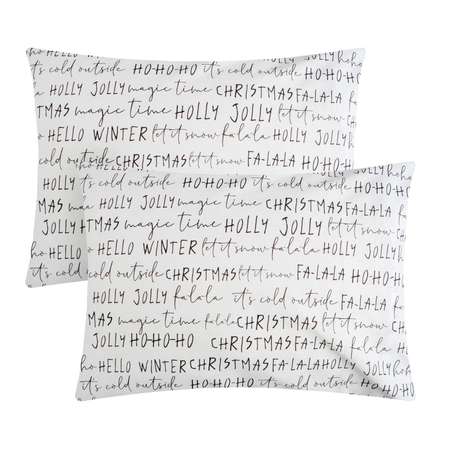 ho HELLO WINTER CHRISTMAS FA-LA-LA HOLLY JOLLY hoho
it's cold outside HO-HO-HO it's cold outside FA-LA-LA
HOLLY JOLLY magic time CHRISTMAS FA-LA-LA
TMAS magic time HOLLY JOLLY let it snow
ho HELLO WINTER let it snow falala FA-LA-LA
it's cold outside CHRISTMAS let it snow FA-LA-LA HO-HO
HOLLY
MAS
HOLLY J
ho HELLO
it's cold outside HO-HO-HO it's cold outside FA-LA-LA
HOLLY JOLLY magic time CHRISTMAS FA-LA-LA
TMAS magic time HOLLY JOLLY let it snow
ho HELLO WINTER let it snow falala FA-LA-LA
it's cold outside CHRISTMAS let it snow FA-LA-LA HO-HO-
HOLLY JOLLY falala it's cold outside FA-LA-LA
TMAS magic time falala CHRISTMAS let it snow
JOLLY HO-HO-HO CHRISTMAS HOLLY JOLLY falala
ho HELLO WINTER CHRISTMAS FA-LA-LA HOLLY JOLLY ho
it's cold outside HO-HO-HO it's cold outside